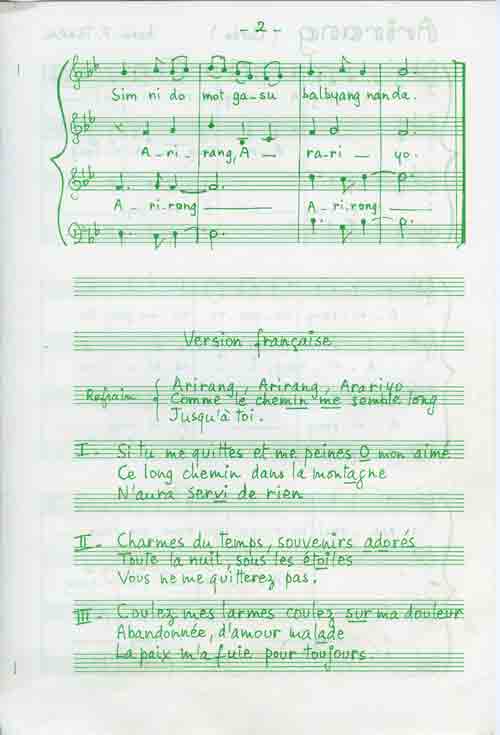 - 2 -
Sim ni do mot ga-su balbyang nan da.
A-ri-rang, A- ra-ri-yo.
A-ri-rong A-ri-rong
Version française
Refrain { Arirang, Arirang, Arariyo,
Comme le chemin me semble long
Jusqu'à toi.
I - Si tu me quittes et me peines O mon aimé
Ce long chemin dans la montagne
N'aura servi de rien
II - Charmes du temps, souvenirs adorés
Toute la nuit, sous les étoiles
Vous ne me quitterez pas.
III - Coulez mes larmes coulez sur ma douleur
Abandonnée, d'amour malade
La paix m'a fuie pour toujours.